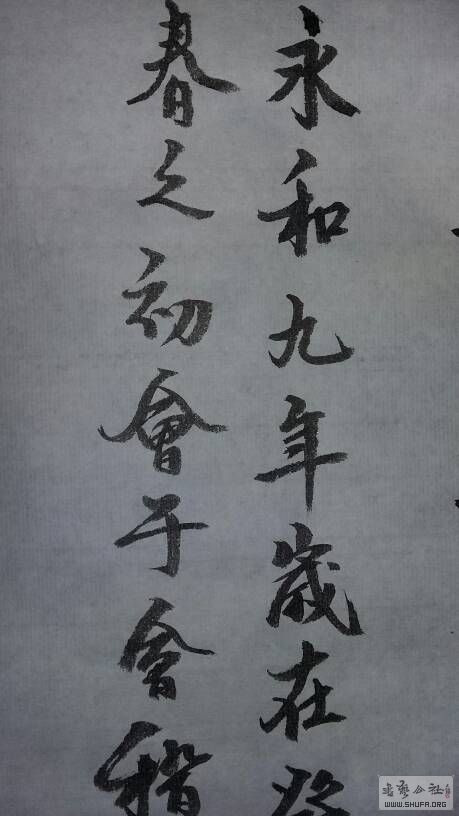 永和九年歲在癸
春之初會于會稽
WWW.SHUFA.ORG